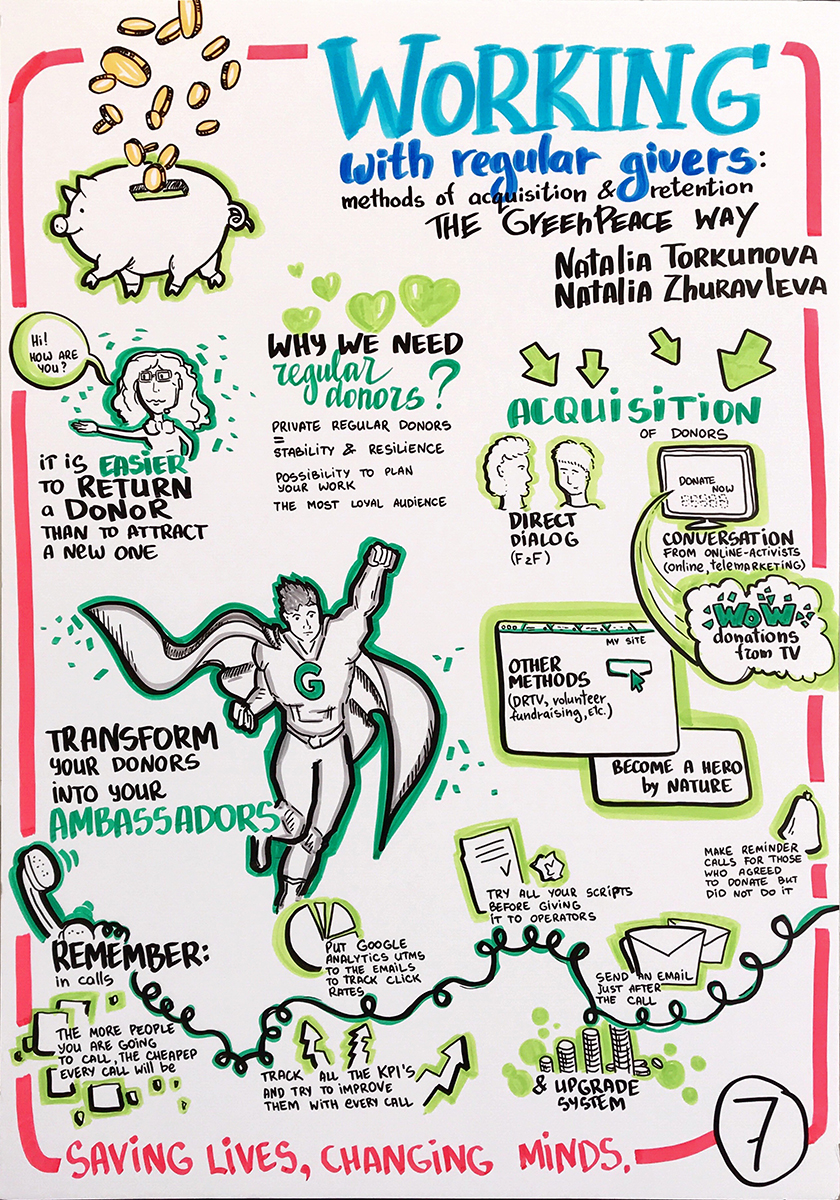 WORKING
with regular givers:
methods of acquisition & retention
THE GREENPEACE WAY
Natalia Torkunova
Natalia Zhuravleva
Hi!
HOW ARE
YOU?
IT IS EASIER
TO RETURN
a DONOR
THAN TO ATTRACT
A NEW ONE
WHY WE NEED
regular
donors?
PRIVATE REGULAR DONORS
=
STABILITY & RESILIENCE
POSSIBILITY TO PLAN
YOUR WORK
THE MOST LOYAL AUDIENCE
ACQUISITION
OF DONORS
DIRECT
DIALOG
(F2F)
DONATE
NOW
CONVERSATION
FROM ONLINE-ACTIVISTS
(online, telemarketing)
WOW
donations
from TV
MY SITE
OTHER
METHODS
(DRTV, volunteer
fundraising, etc.)
BECOME A HERO
by NATURE
G
TRANSFORM
YOUR DONORS
INTO YOUR
AMBASSADORS
REMEMBER:
in calls
THE MORE PEOPLE
YOU ARE GOING
TO CALL, THE CHEAPEP
EVERY CALL will be
PUT GOOGLE
ANALYTICS UTMS
TO THE EMAILS
TO TRACK CLICK
RATES
TRACK ALL THE KPI'S
AND TRY TO IMPROVE
THEM WITH EVERY CALL
TRY ALL YOUR SCRIPTS
BEFORE GIVING
IT TO OPERATORS
SEND AN EMAIL
JUST AFTER
THE CALL
MAKE REMINDER
CALLS FOR THOSE
WHO AGREED
TO DONATE BUT
DID NOT DO IT
& UPGRADE
SYSTEM
SAVING LIVES, CHANGING MINDS.
7